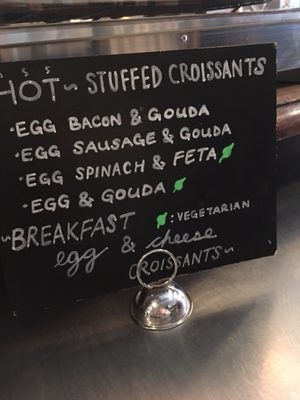 HOT ~ STUFFED CROISSANTS
· EGG BACON & GOUDA
· EGG SAUSAGE & GOUDA
· EGG SPINACH & FETA
· EGG & GOUDA
: VEGETARIAN
~BREAKFAST
egg & cheese
CROISSANTS~